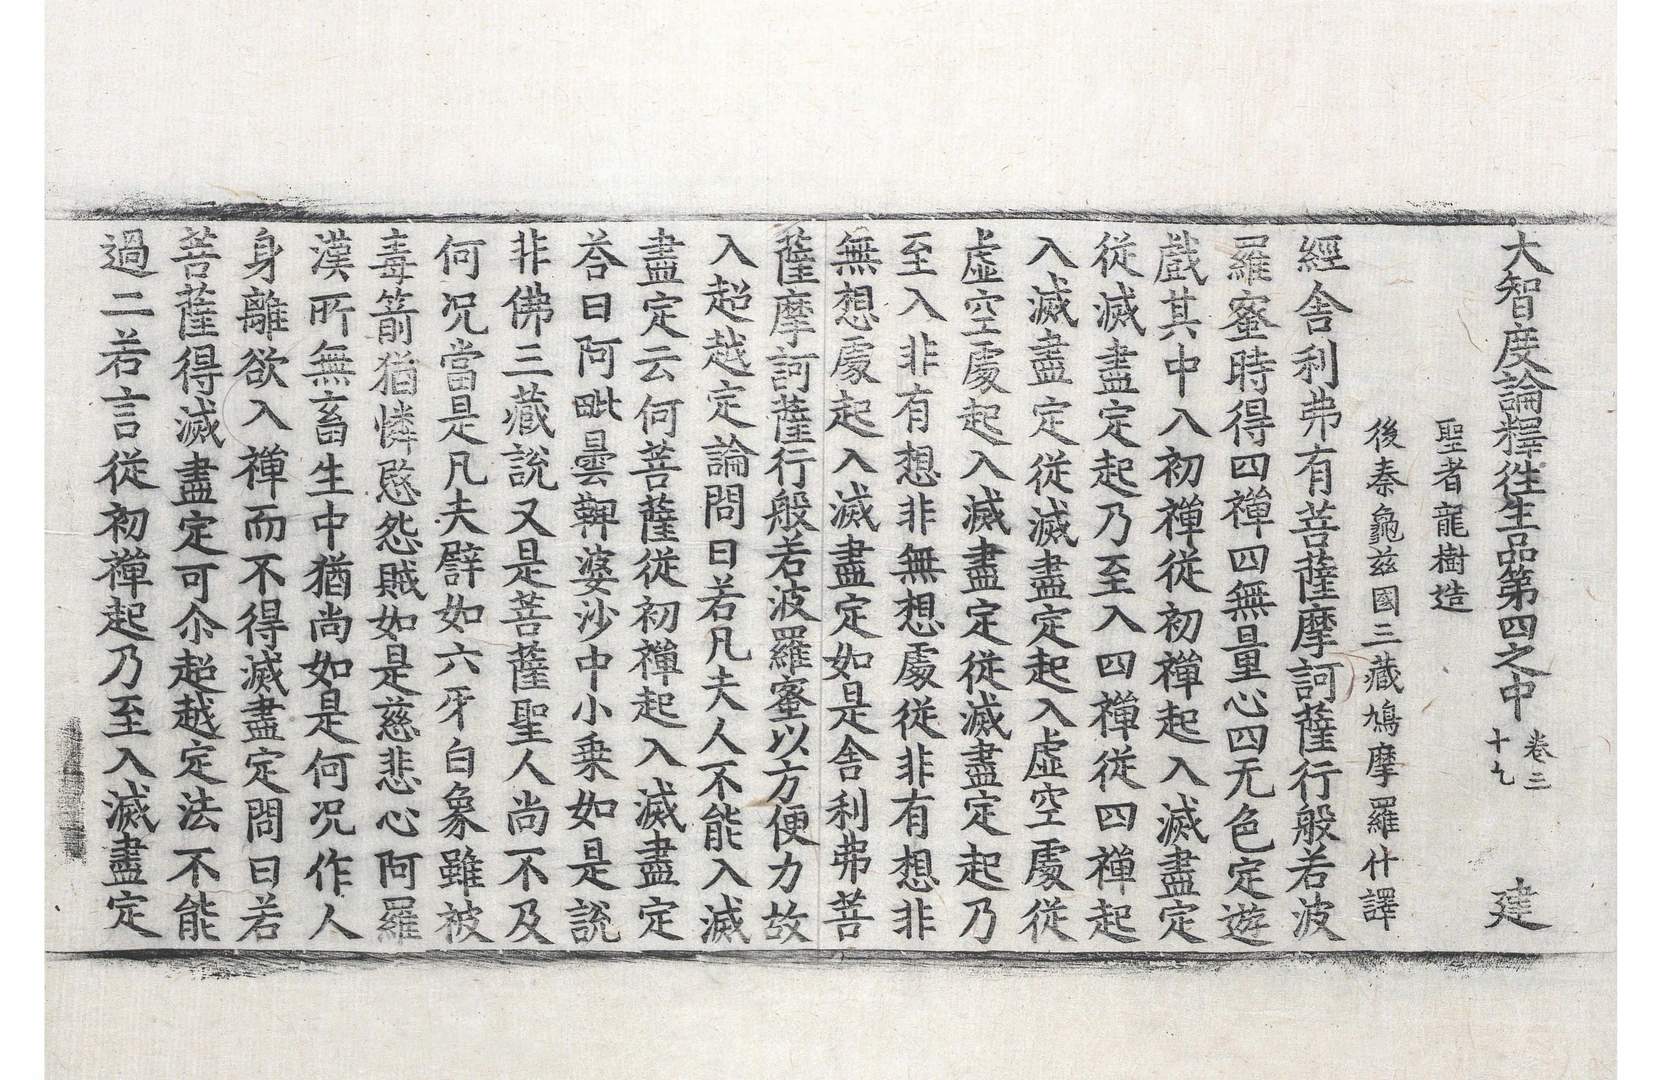 大智度論釋徃生品第四之中 卷三十九 建
聖者龍樹造
後秦龜茲國三藏鳩摩羅什譯
經舍利弗有菩薩摩訶薩行般若波
羅蜜時得四禪四無量心四无色定遊
戲其中入初禪從初禪起入滅盡定
從滅盡定起乃至入四禪從四禪起
入滅盡定從滅盡定起入虛空處從
虛空處起入滅盡定從滅盡定起乃
至入非有想非無想處從非有想非
無想處起入滅盡定如是舍利弗菩
薩摩訶薩行般若波羅蜜以方便力故
入超越定論問曰若凡夫人不能入滅
盡定云何菩薩從初禪起入滅盡定
荅曰阿毗曇鞞婆沙中小乗如是說
非佛三藏說又是菩薩聖人尚不及
何況當是凡夫譬如六牙白象雖被
毒箭猶憐愍怨賊如是慈悲心阿羅
漢所無畜生中猶尚如是何況作人
身離欲入禪而不得滅盡定問曰若
菩薩得滅盡定可尒超越定法不能
過二若言從初禪起乃至入滅盡定